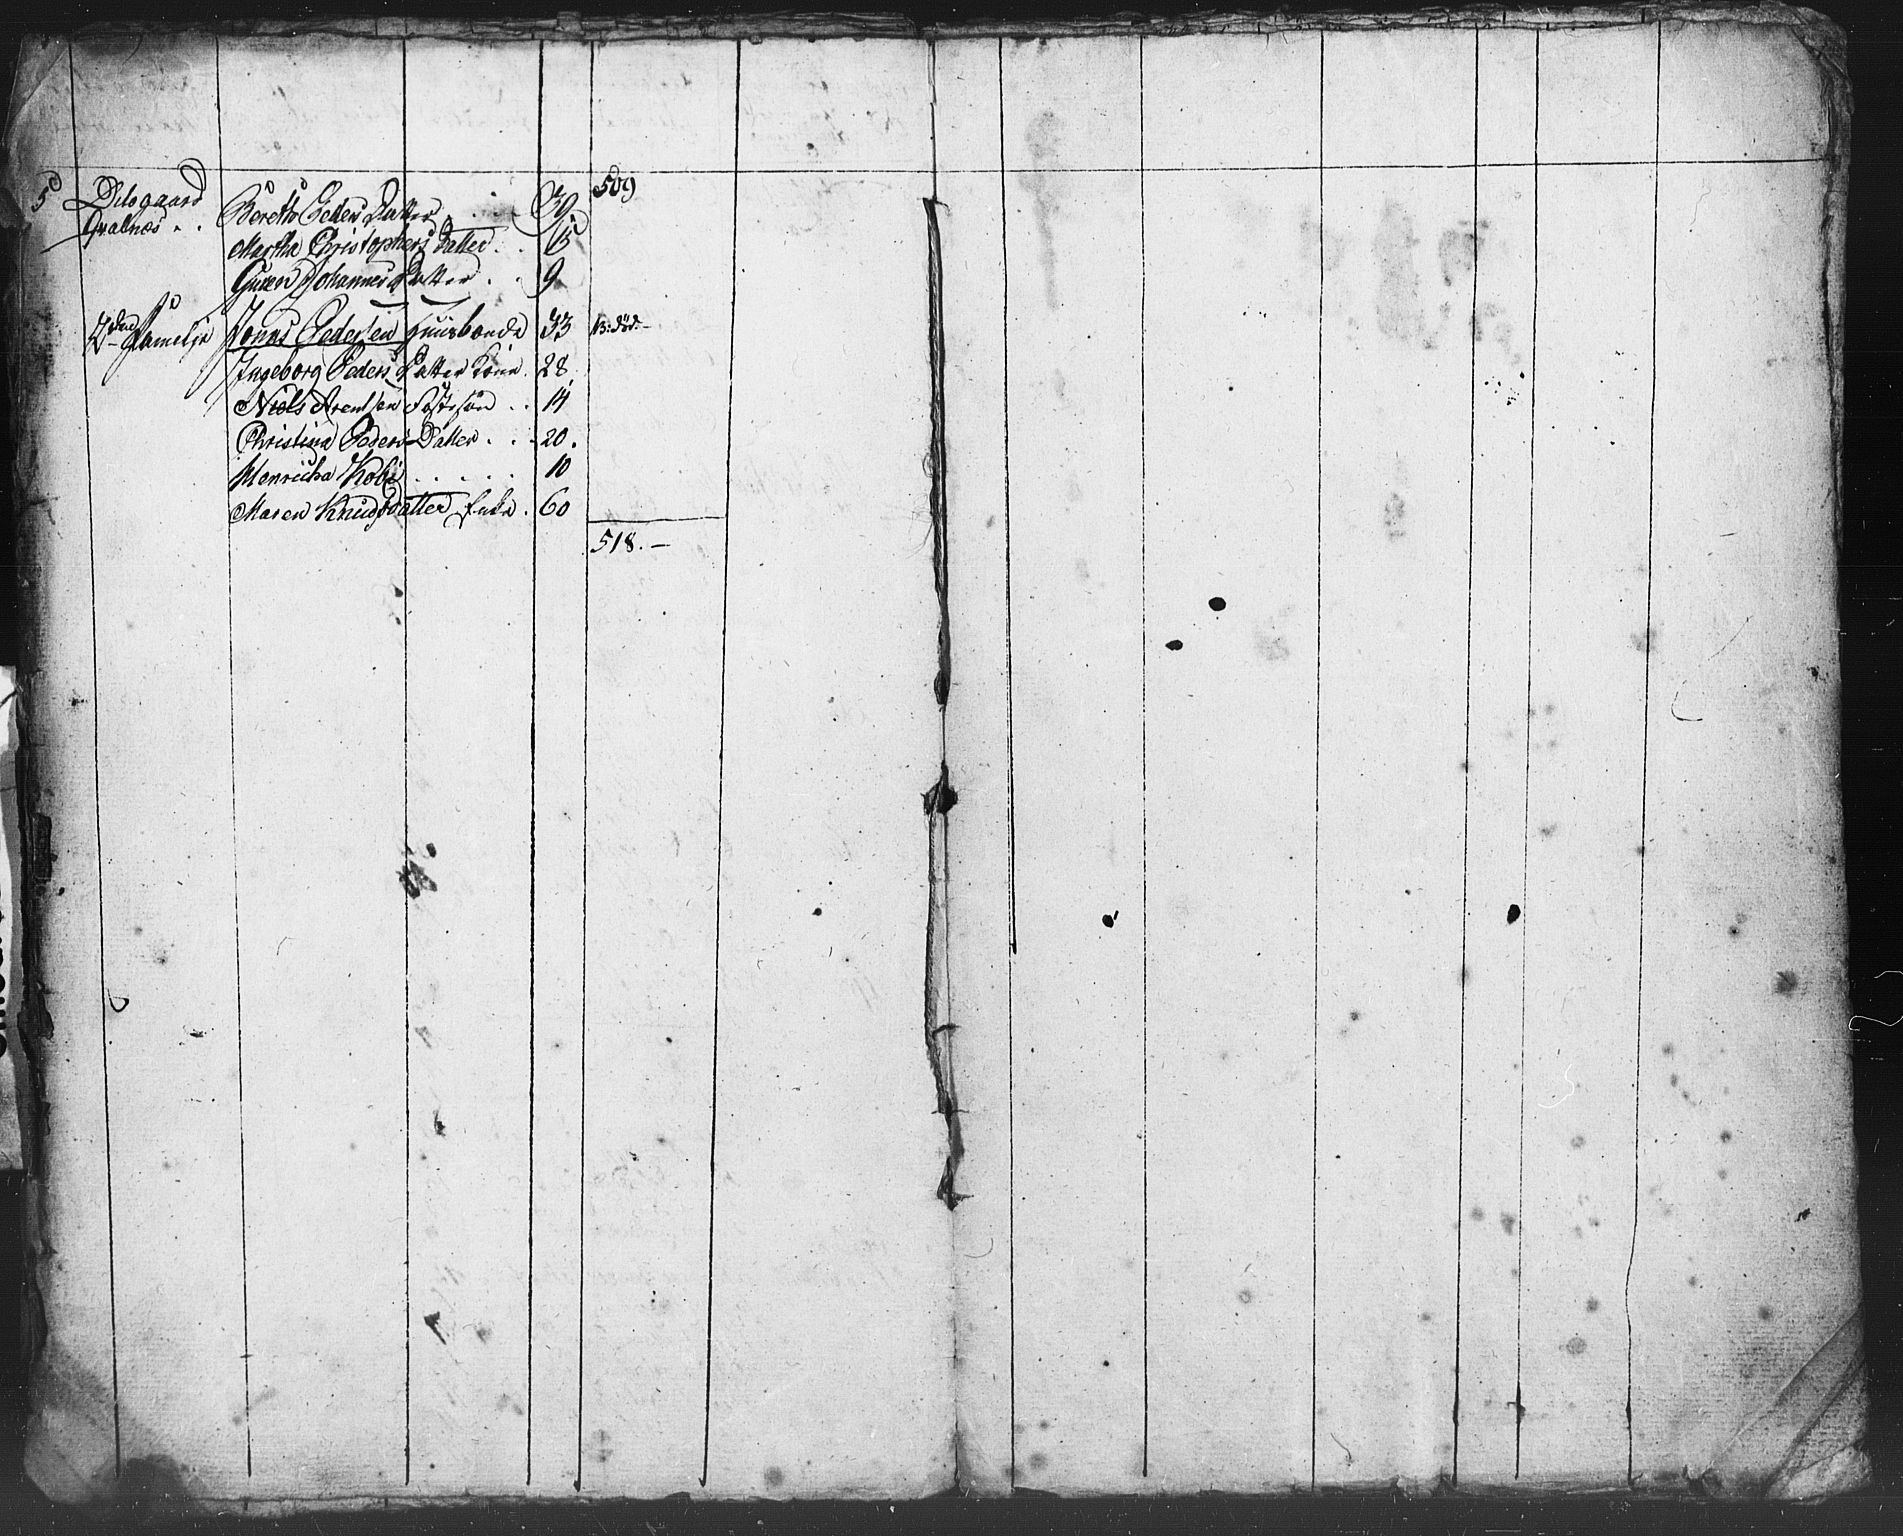 5 Ødegaard Bereth Peders Datter . . . 30. 509
Qvalnæs . . Martha Christophers Datter . . 15
Guren Johannes Datter . . 9
2den Familje Jonas Pedersen Huusbonde 33 B: død.—
Ingeborg Peders Datter Kone. 28
Niels Arentsen Fostersøn . . 14
Christina Peders Datter . . . 20.
Henricha Kobi . . . . . 10
Maren Knudsdatter Enke . 60
518.—